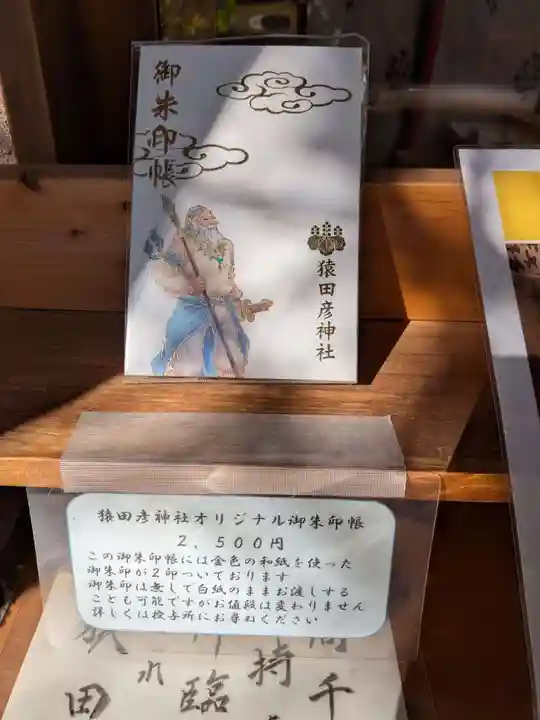 御朱印帳
猿田彦神社
猿田彦神社オリジナル御朱印帳
2,500円
この御朱印帳には金色の和紙を使った
御朱印が2印ついております
御朱印は無しで白紙のままお渡しする
ことも可能ですがお値段は変わりません
詳しくは授与所にお尋ねください
田
れ
臨
持
千